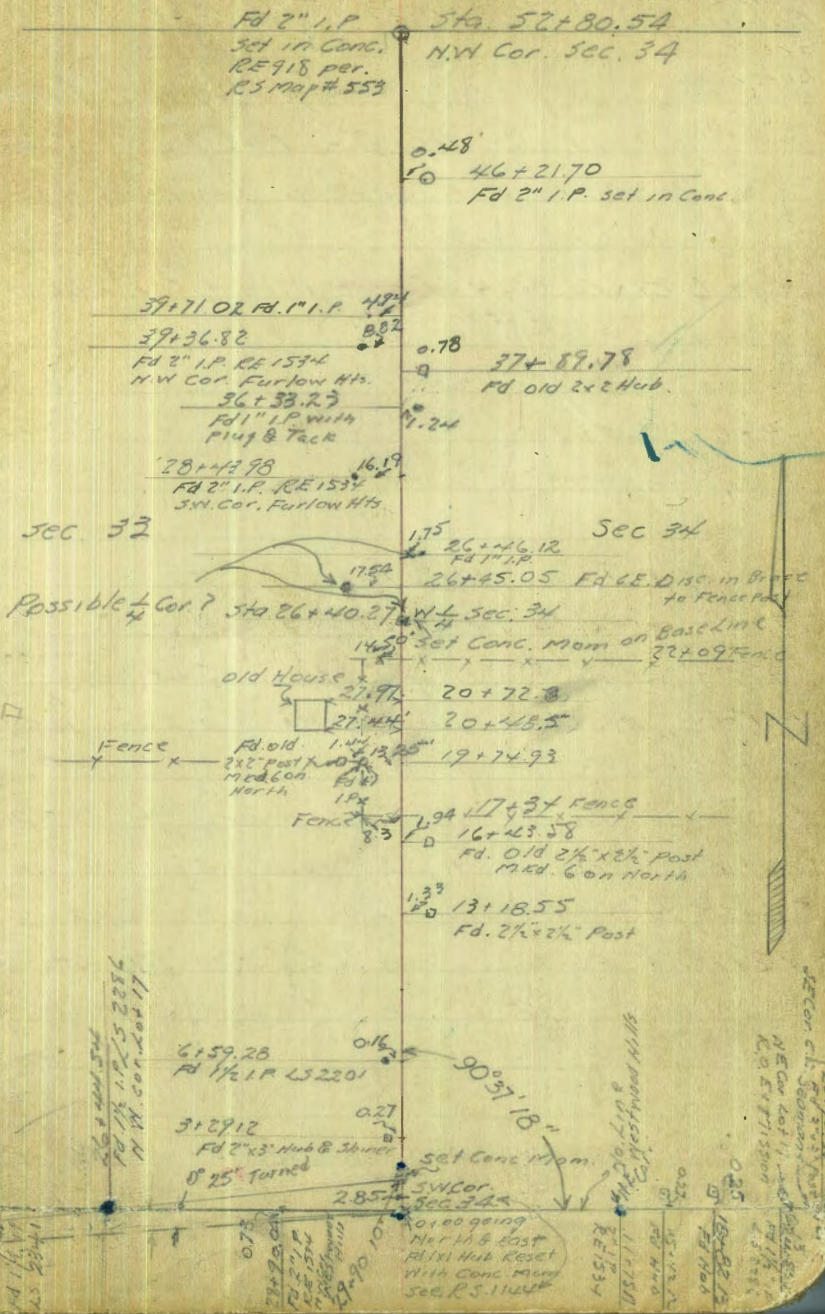 Fd 2" I.P.
set in Conc.
RE 918 per.
RS Map # 553
Sta. 52+80.54
N.W Cor. Sec. 34
0.48'
46+21.70
Fd 2" I.P. set in Conc.
39+71.02 Fd. 1" I.P.
39+36.82
8.82
Fd 2" I.P. RE 1534
N.W Cor. Furlow Hts.
0.78
37+89.78
Fd old 2x2 Hub.
36+33.23
Fd 1" I.P. with
Plug & Tack
1.24
28+43.98
16.19
Fd 2" I.P. RE 1534
S.W. Cor. Furlow Hts.
Sec. 33
Sec 34
1.75
26+46.12
Fd 1" I.P.
17.54
26+45.05 Fd C.E. Disc. in Brace
to Fence Post
Possible 1/4 Cor.?
Sta. 26+40.27
W 1/4 Sec. 34
Set Conc. Mom on Base Line
14.50'
22+09 Fence
Old House
27.97
20+72.8
27.44'
20+48.5
Fence
Fd. old
2x2" Post
Mkd 6 on
North
1.44
13.25
19+74.93
Fd
I.P.
17+34 Fence
Fence
8.3
1.94
16+43.58
Fd. Old 2½"x2½" Post
Mkd. 6 on North
1.33
13+18.55
Fd. 2½"x2½" Post
6+59.28
0.16
Fd 1½ I.P. LS 2201
90°37'18"
3+29.12
0.27
Fd 2"x3" Hub & Shiner
0° 25' Turned
Set Conc Mom.
2.85
SW Cor.
Sec. 34
0+00 going
North & East
Fd 1x1 Hub Reset
With Conc. Mom
See R.S. 1144
Fd 1½ I.P. LS 2286
N W. Cor. Lot 17
0.73
Fd 2" I.P.
RE 1534
Westwood Hills
RE 1534
0.25
Fd Hub